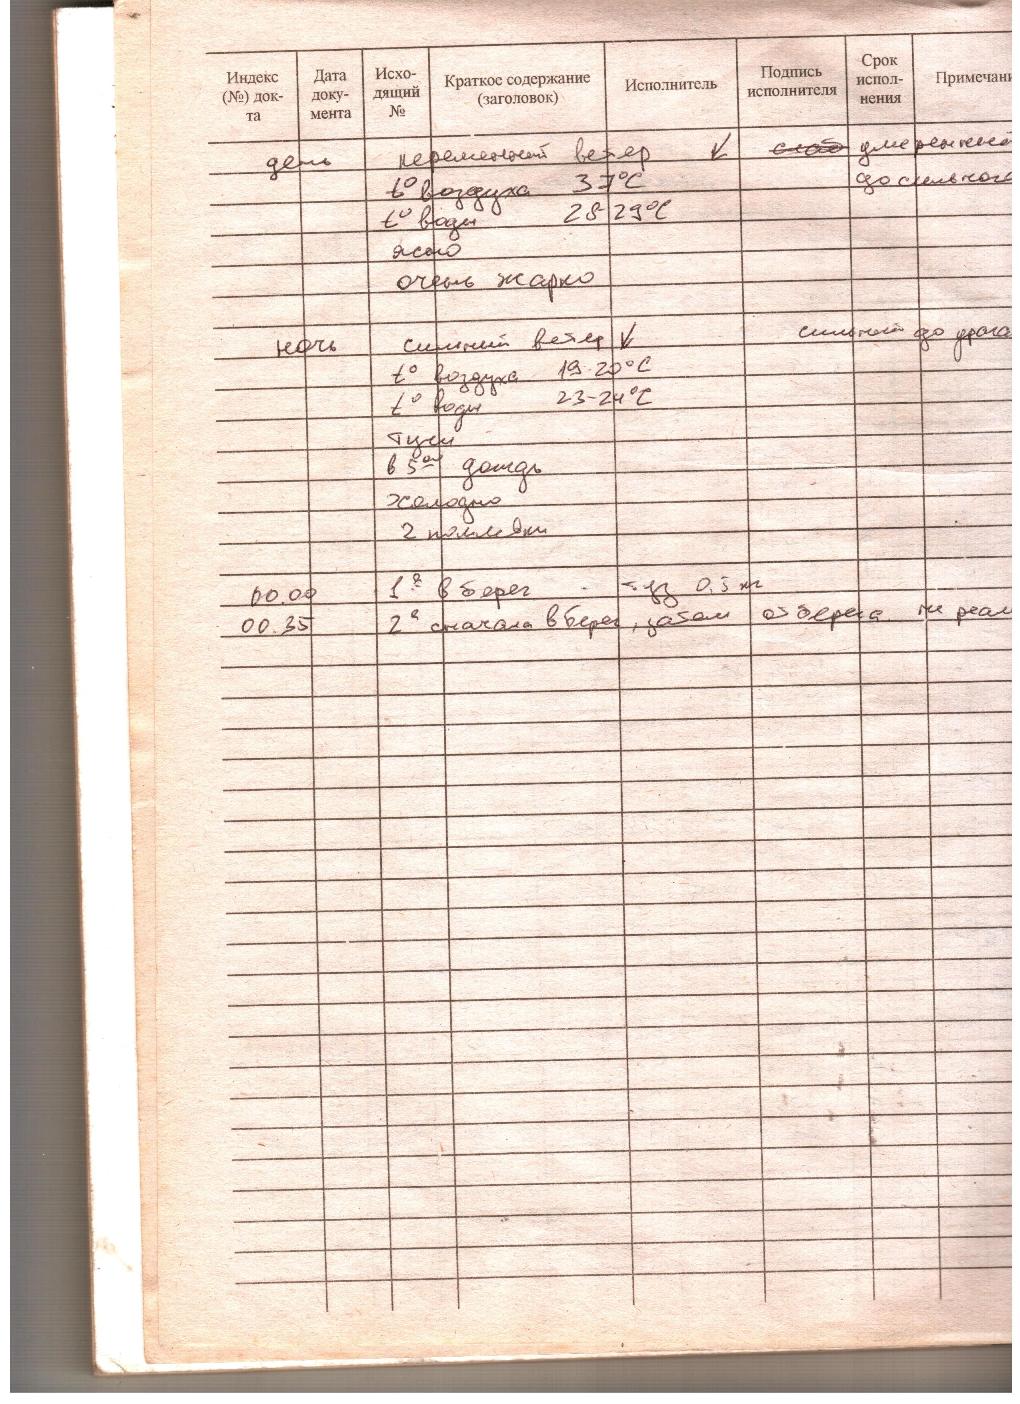 Индекс (№) док-та Дата доку-мента Исхо-дящий № Краткое содержание (заголовок) Исполнитель Подпись исполнителя Срок испол-нения Примечани
день переменный ветер ↙ умеренный
до сильного
t° воздуха 37°C
t° воды 28-29°C
ясно
очень жарко
ночь сильный ветер ↙ сильный до урага
t° воздуха 19-20°C
t° воды 23-24°C
тучи
в 5 дождь
холодно
2 поклёвки
00.00 1я в берег - 0,5 кг
00.35 2я сначала в берег, затем от берега. не реал